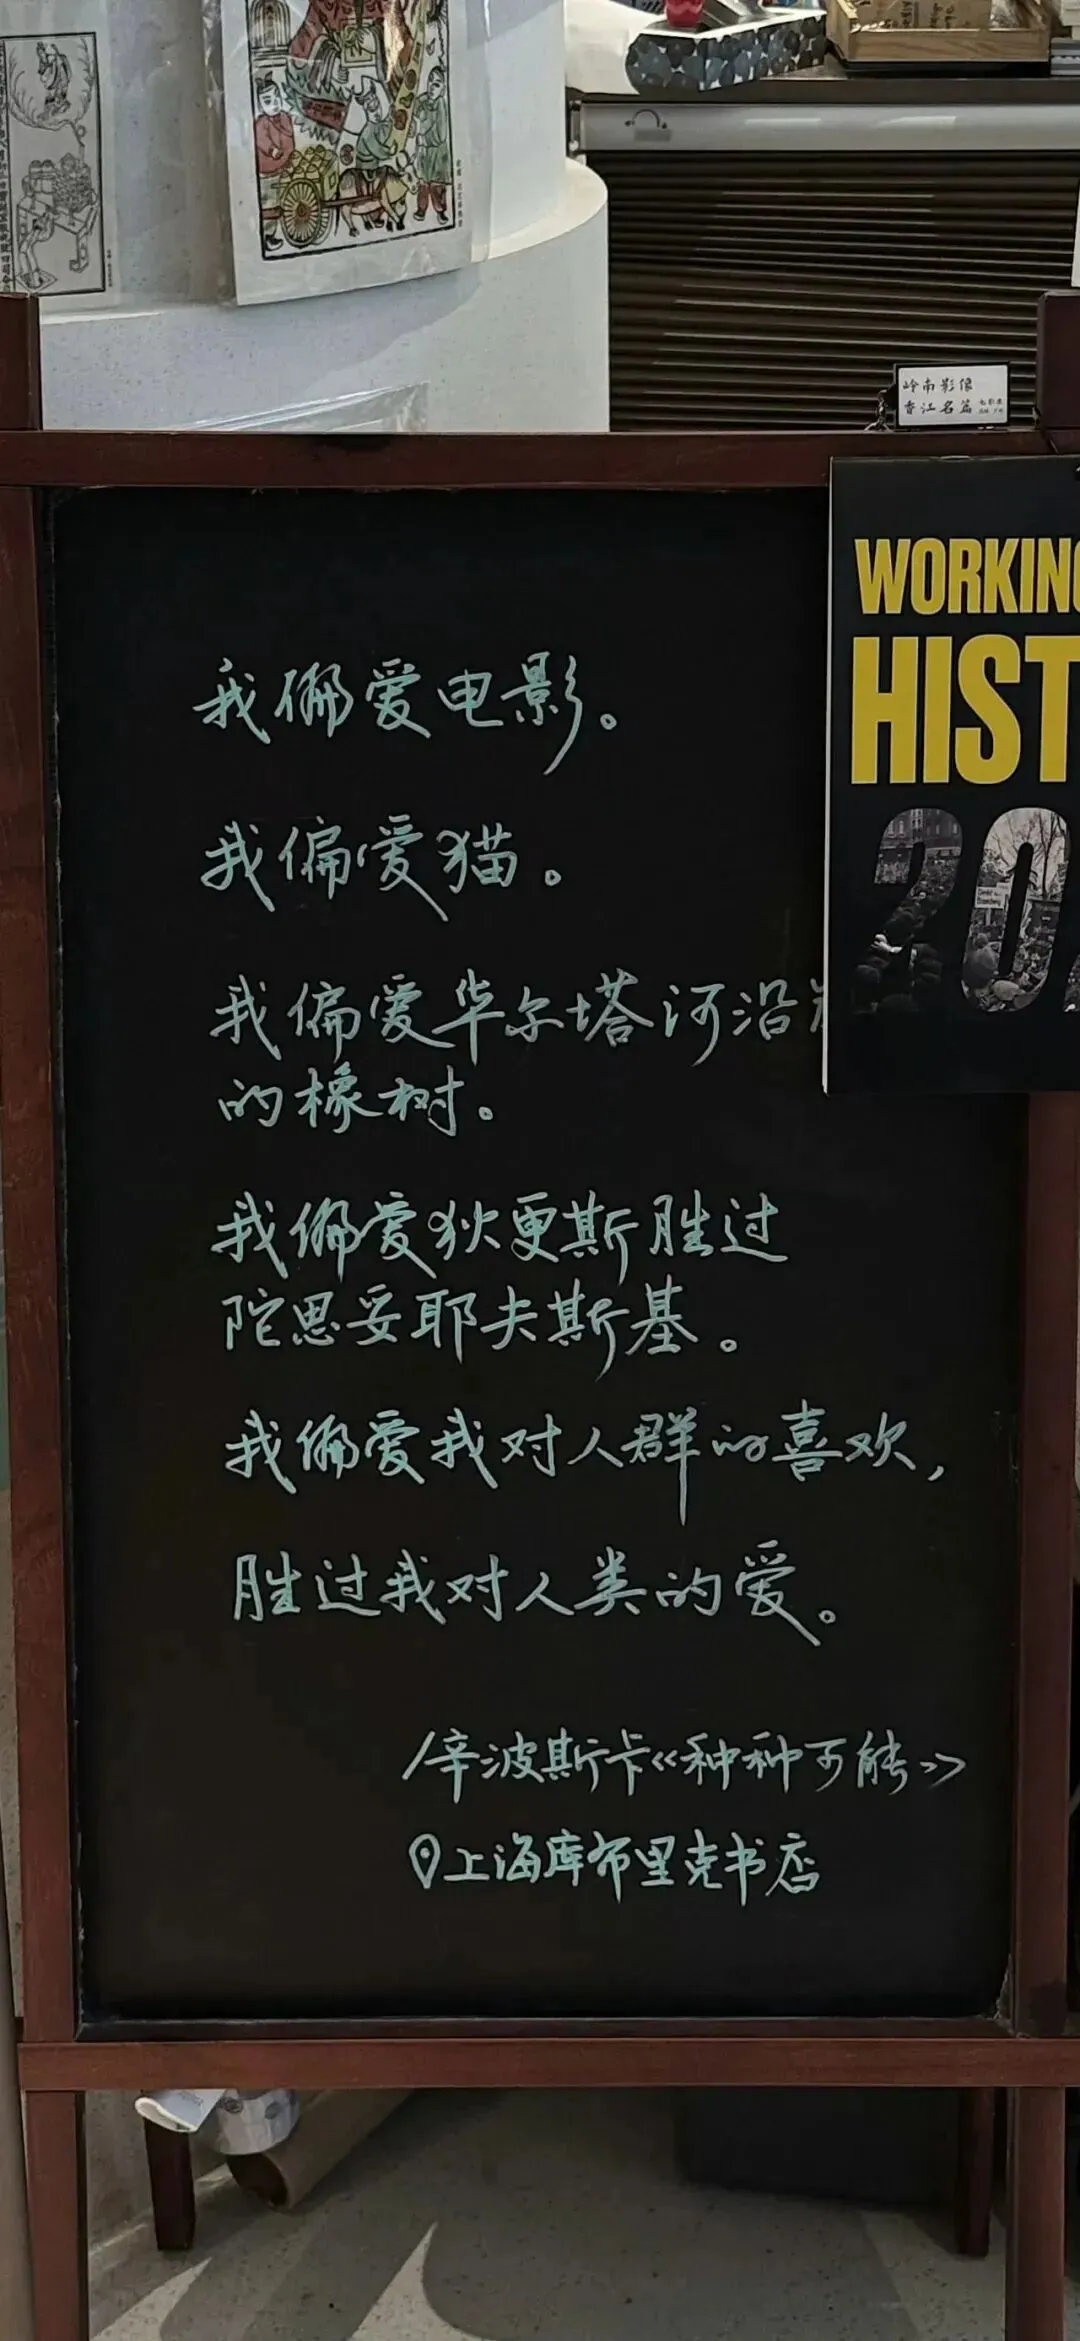 岭南影像
香江名篇
WORKING
HIST
202
我偏爱电影。
我偏爱猫。
我偏爱华尔塔河沿
的橡树。
我偏爱狄更斯胜过
陀思妥耶夫斯基。
我偏爱我对人群的喜欢,
胜过我对人类的爱。
/辛波斯卡《种种可能》
上海库布里克书店